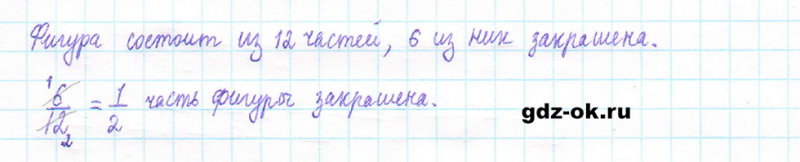 Фигура состоит из 12 частей, 6 из них закрашена.
1 6/12 2 = 1/2 часть фигуры закрашена.
gdz-ok.ru